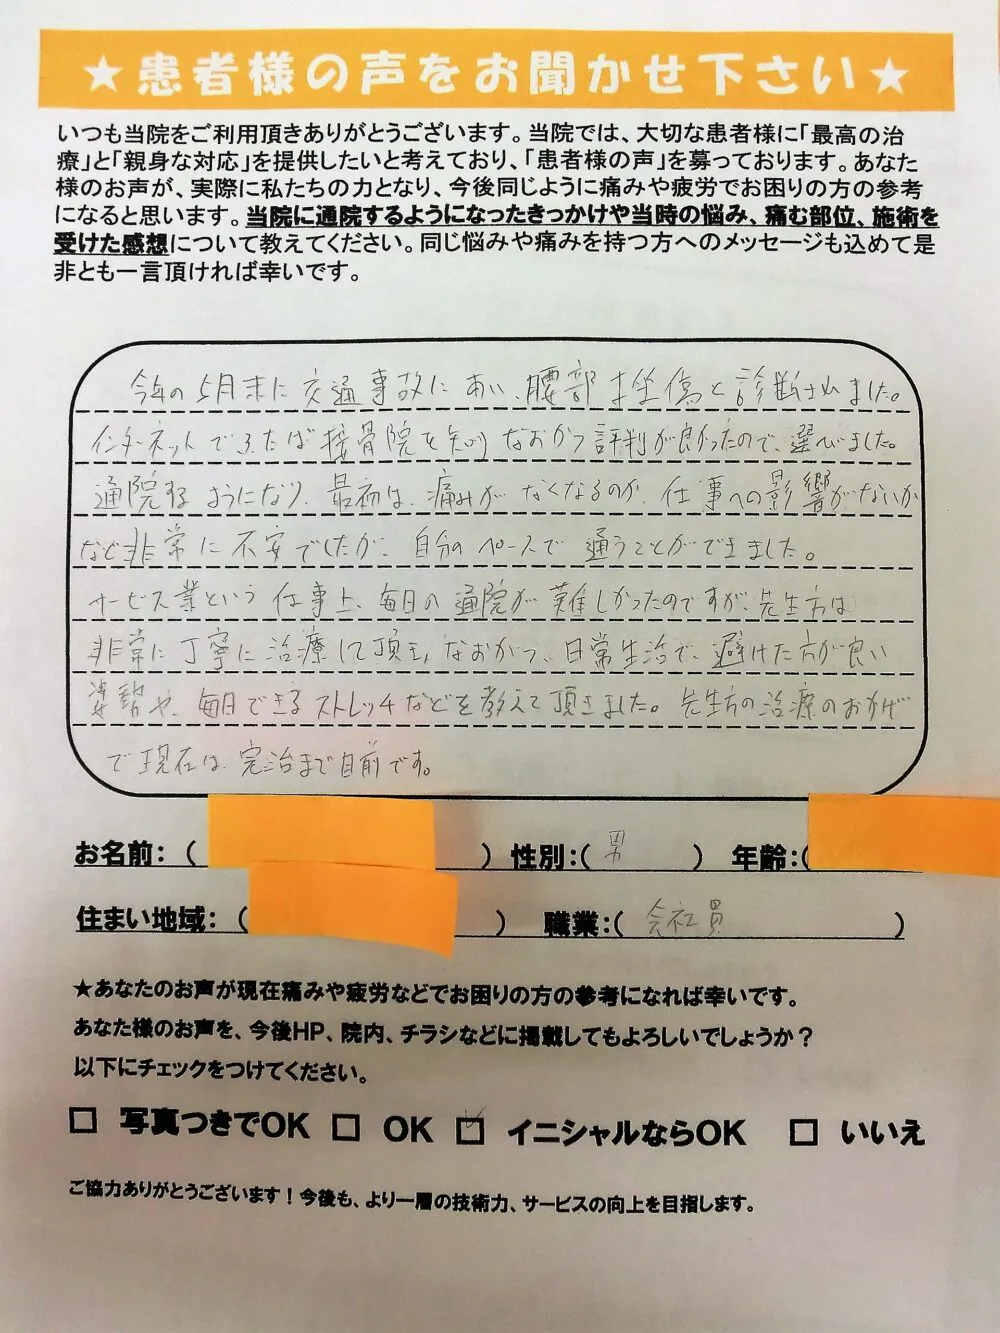 ★患者様の声をお聞かせ下さい★
いつも当院をご利用頂きありがとうございます。当院では、大切な患者様に「最高の治
療」と「親身な対応」を提供したいと考えており、「患者様の声」を募っております。あなた
様のお声が、実際に私たちの力となり、今後同じように痛みや疲労でお困りの方の参考
になると思います。当院に通院するようになったきっかけや当時の悩み、痛む部位、施術を
受けた感想について教えてください。同じ悩みや痛みを持つ方へのメッセージも込めて是
非とも一言頂ければ幸いです。
今年の5月末に交通事故にあい、腰部挫傷と診断されました。
インターネットでふたば接骨院を知り なおかつ評判が良かったので、選びました。
通院するようになり、最初は、痛みが なくなるのか、仕事への影響がないか
など非常に不安でしたが、自分のペースで 通うことができました。
サービス業という仕事上、毎日の通院が難しかったのですが、先生方は
非常に丁寧に治療して頂き、なおかつ、日常生活で、避けた方が良い
姿勢や、毎日できるストレッチなどを教えて頂きました。先生方の治療のおかげ
で現在は、完治まで目前です。
お名前：（ ） 性別：（ 男 ） 年齢：（
住まい地域：（ ） 職業：（ 会社員 ）
★あなたのお声が現在痛みや疲労などでお困りの方の参考になれば幸いです。
あなた様のお声を、今後HP、院内、チラシなどに掲載してもよろしいでしょうか？
以下にチェックをつけてください。
□ 写真つきでOK □ OK ☑ イニシャルならOK □ いいえ
ご協力ありがとうございます！今後も、より一層の技術力、サービスの向上を目指します。